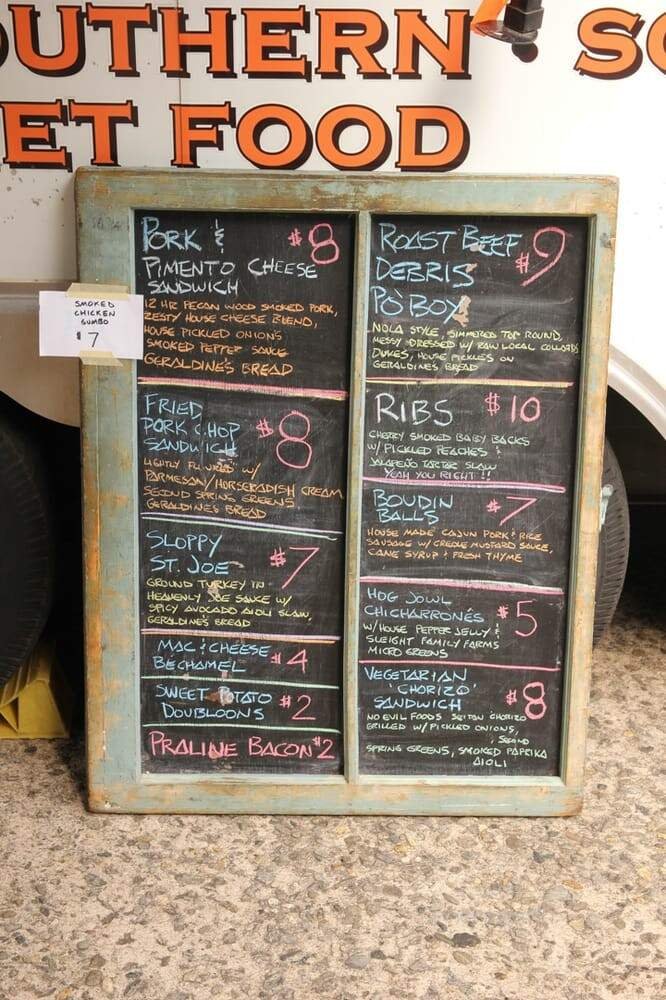 OUTHERN SO
ET FOOD
SMOKED
CHICKEN
GUMBO
$7
PORK & $8
PIMENTO CHEESE
SANDWICH
12 HR PECAN WOOD SMOKED PORK,
ZESTY HOUSE CHEESE BLEND,
HOUSE PICKLED ONIONS
SMOKED PEPPER SAUCE
GERALDINE'S BREAD
FRIED
PORK CHOP $8
SANDWICH
LIGHTLY W/
PARMESAN/HORSERADISH CREAM
SECOND SPRING GREENS
GERALDINE'S BREAD
SLOPPY
ST. JOE $7
GROUND TURKEY IN
HEAVENLY JOE SAUCE W/
SPICY AVOCADO AIOLI SLAW,
GERALDINE'S BREAD
MAC & CHEESE
BECHAMEL $4
SWEET POTATO
DOUBLOONS $2
PRALINE BACON $2
ROAST BEEF $9
DEBRIS
PO'BOY
NOLA STYLE, SIMMERED TOP ROUND,
MESSY DRESSED W/ RAW LOCAL COLLARDS
DUKES, HOUSE PICKLES ON
GERALDINE'S BREAD
RIBS $10
CHERRY SMOKED BABY BACKS
W/ PICKLED PEACHES &
JALAPEÑO TARTER SLAW
YEAH YOU RIGHT!!
BOUDIN $7
BALLS
HOUSE MADE CAJUN PORK & RICE
SAUSAGE W/ CREOLE MUSTARD SAUCE,
CANE SYRUP & FRESH THYME
HOG JOWL
CHICHARRONÉS $5
W/ HOUSE PEPPER JELLY &
SLEIGHT FAMILY FARMS
MICRO GREENS
VEGETARIAN
'CHORIZO' $8
SANDWICH
NO EVIL FOODS SEITAN CHORIZO
GRILLED W/ PICKLED ONIONS,
SECOND
SPRING GREENS, SMOKED PAPRIKA
AIOLI